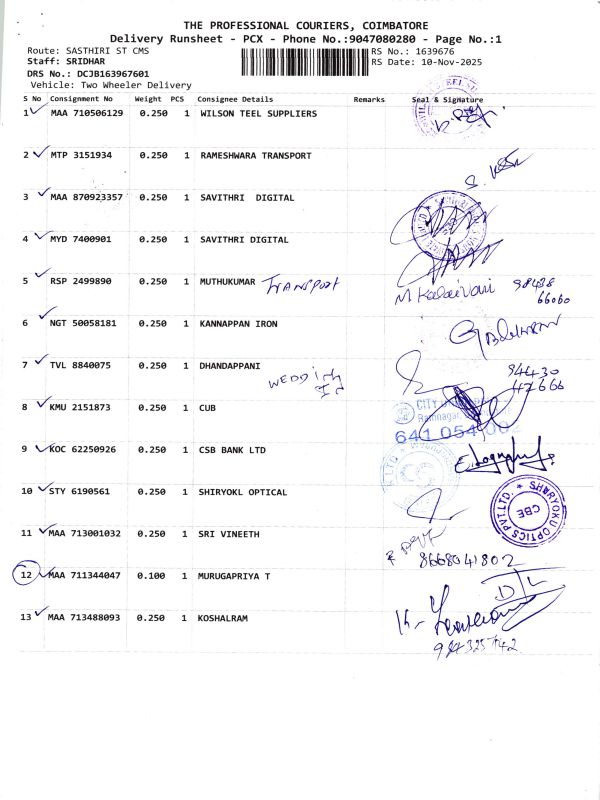 THE PROFESSIONAL COURIERS, COIMBATORE
Delivery Runsheet - PCX - Phone No.:9047080280 - Page No.:1
Route: SASTHIRI ST CMS RS No.: 1639676
Staff: SRIDHAR RS Date: 10-Nov-2025
DRS No.: DCJB163967601
Vehicle: Two Wheeler Delivery
S No Consignment No Weight PCS Consignee Details Remarks Seal & Signature
1 MAA 710506129 0.250 1 WILSON TEEL SUPPLIERS
2 MTP 3151934 0.250 1 RAMESHWARA TRANSPORT
3 MAA 870923357 0.250 1 SAVITHRI DIGITAL
4 MYD 7400901 0.250 1 SAVITHRI DIGITAL
5 RSP 2499890 0.250 1 MUTHUKUMAR TRANSPORT M Kalaivani 98438
66060
6 NGT 50058181 0.250 1 KANNAPPAN IRON
7 TVL 8840075 0.250 1 DHANDAPPANI 94430
WEDDING 47666
8 KMU 2151873 0.250 1 CUB CITY
Ramnagar,
641 054
9 KOC 62250926 0.250 1 CSB BANK LTD
10 STY 6190561 0.250 1 SHIRYOKL OPTICAL SHIRYOKU OPTICS PVT.LTD. CBE
11 MAA 713001032 0.250 1 SRI VINEETH
8668041802
12 MAA 711344047 0.100 1 MURUGAPRIYA T D/L
13 MAA 713488093 0.250 1 KOSHALRAM